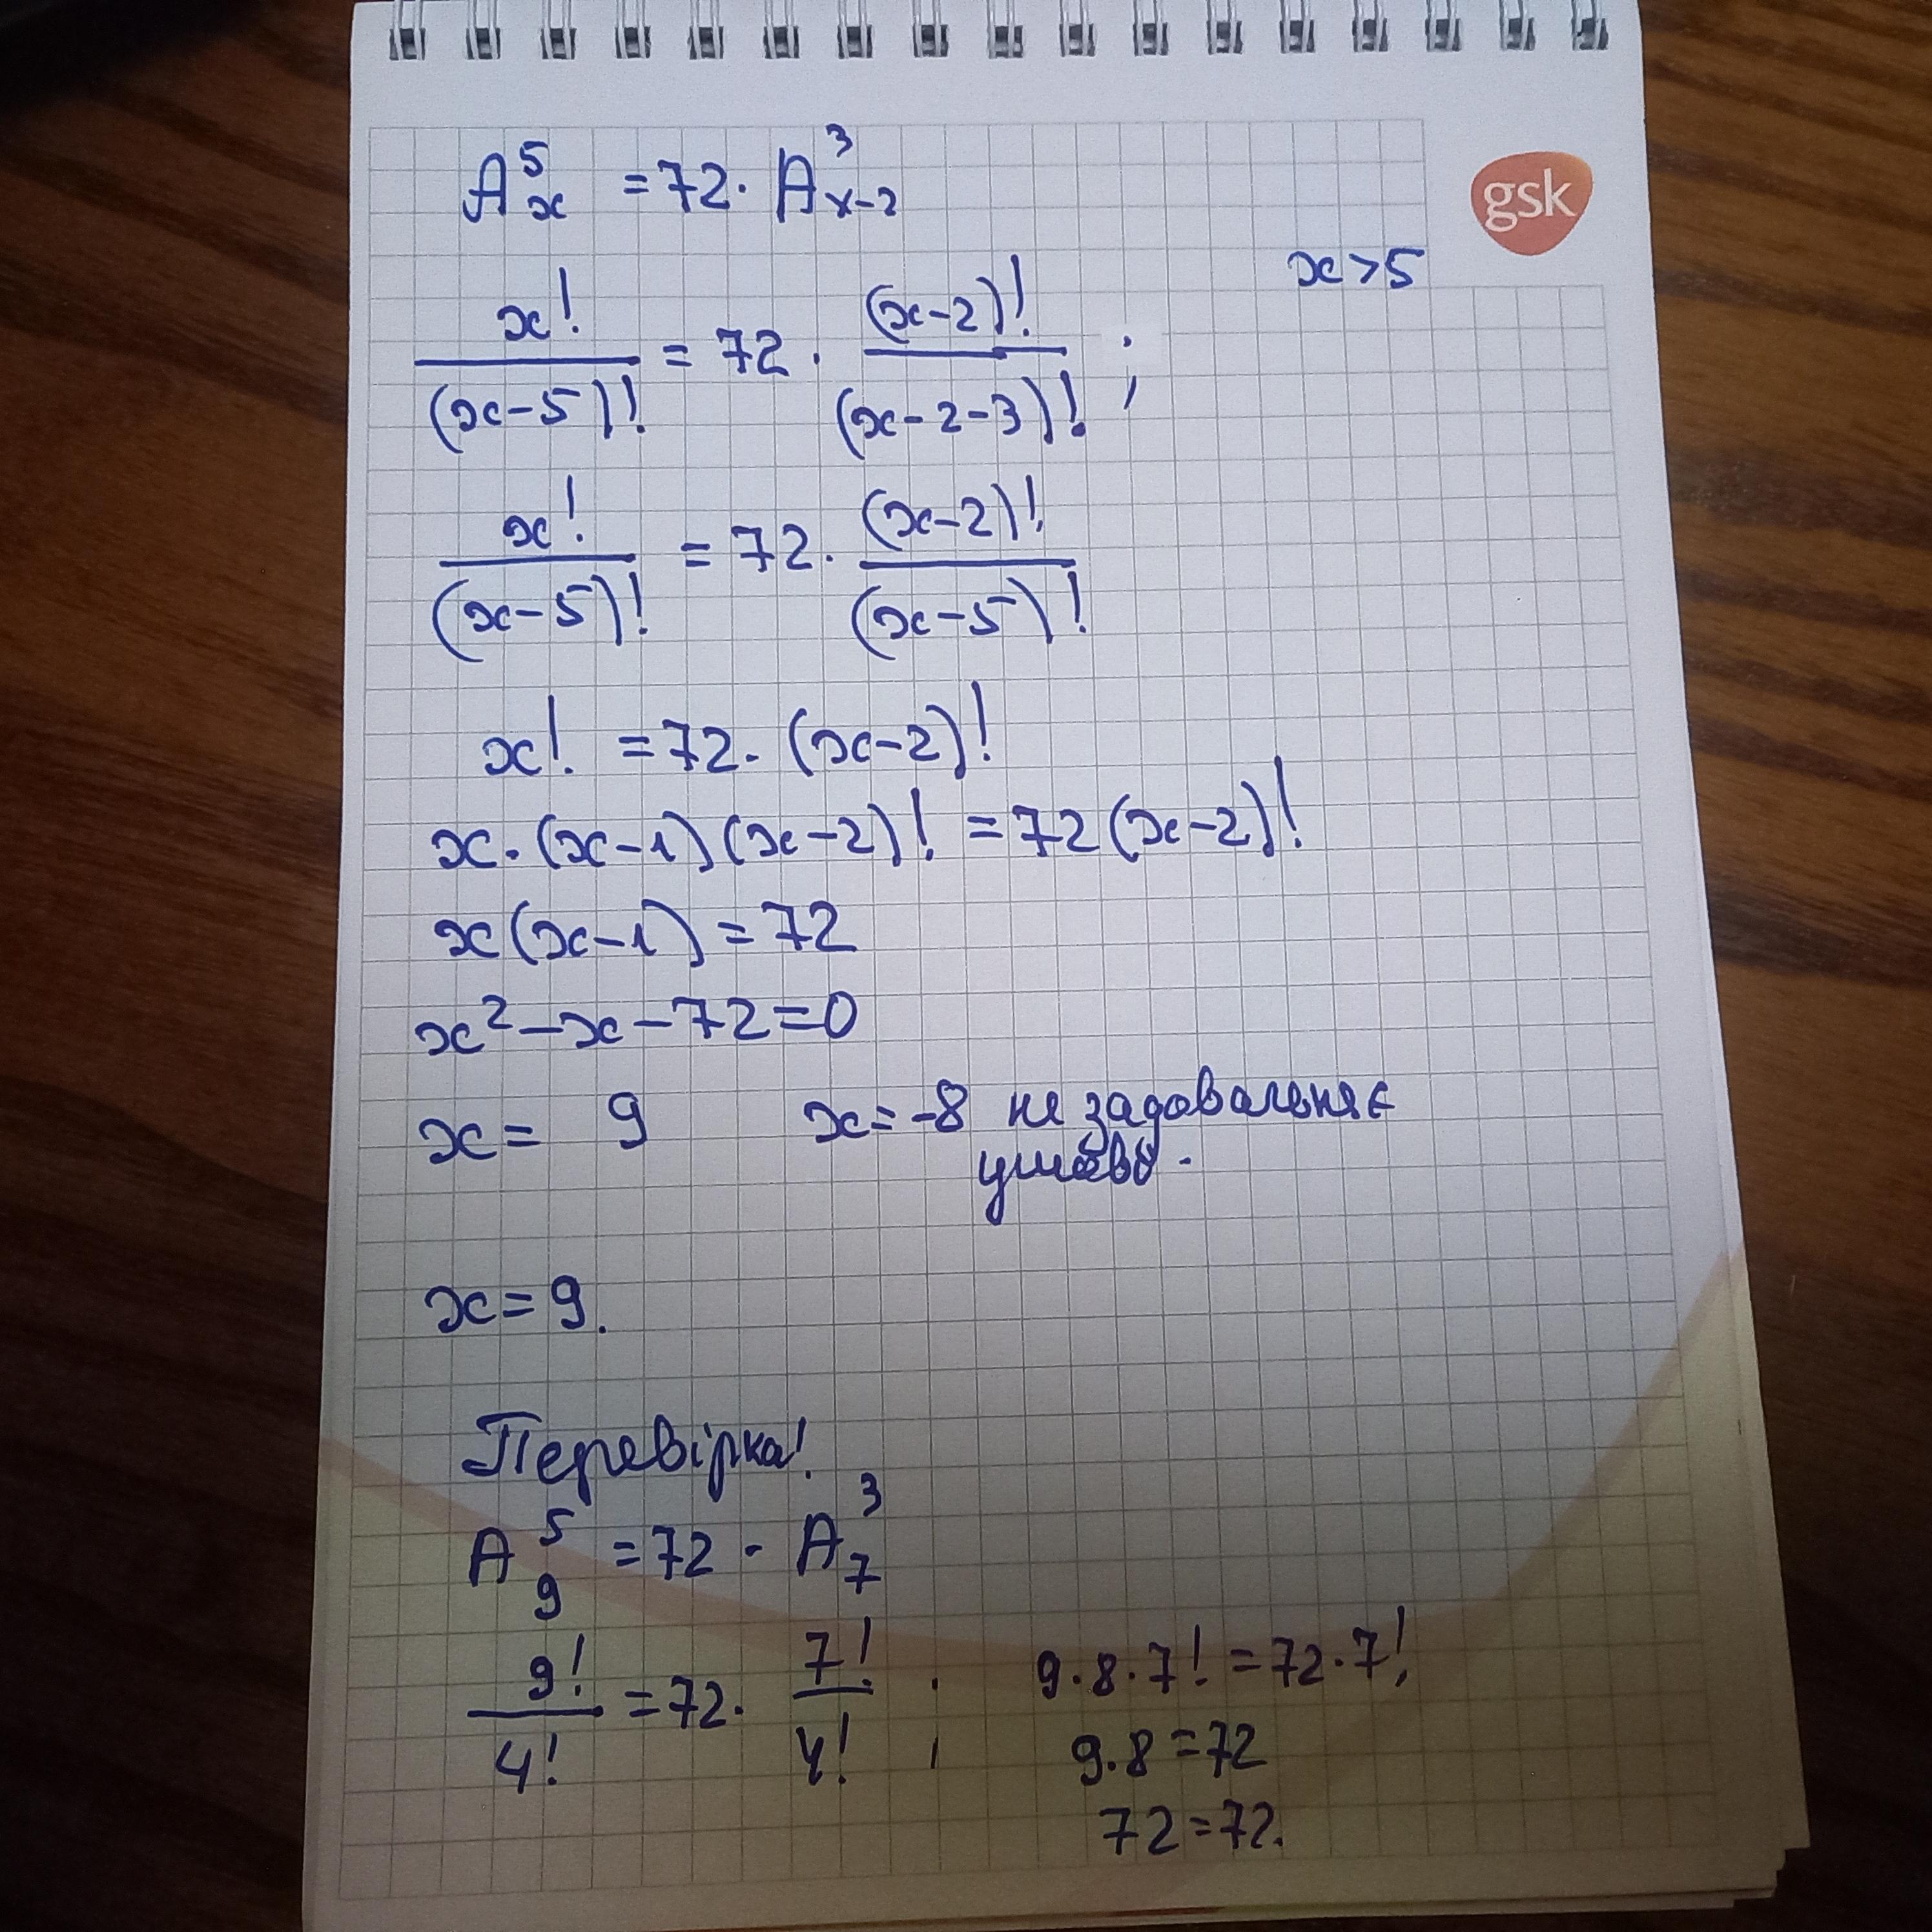 A⁵ₓ = 72 · A³ₓ₋₂
gsk
x > 5
x! / (x-5)! = 72 · (x-2)! / (x-2-3)! ;
x! / (x-5)! = 72 · (x-2)! / (x-5)!
x! = 72 · (x-2)!
x · (x-1)(x-2)! = 72(x-2)!
x(x-1) = 72
x² - x - 72 = 0
x = 9 x = -8 не задовольняє
умову.
x = 9.
Перевірка!
A⁵₉ = 72 · A³₇
9! / 4! = 72 · 7! / 4! ; 9·8·7! = 72·7!,
9·8 = 72
72 = 72.